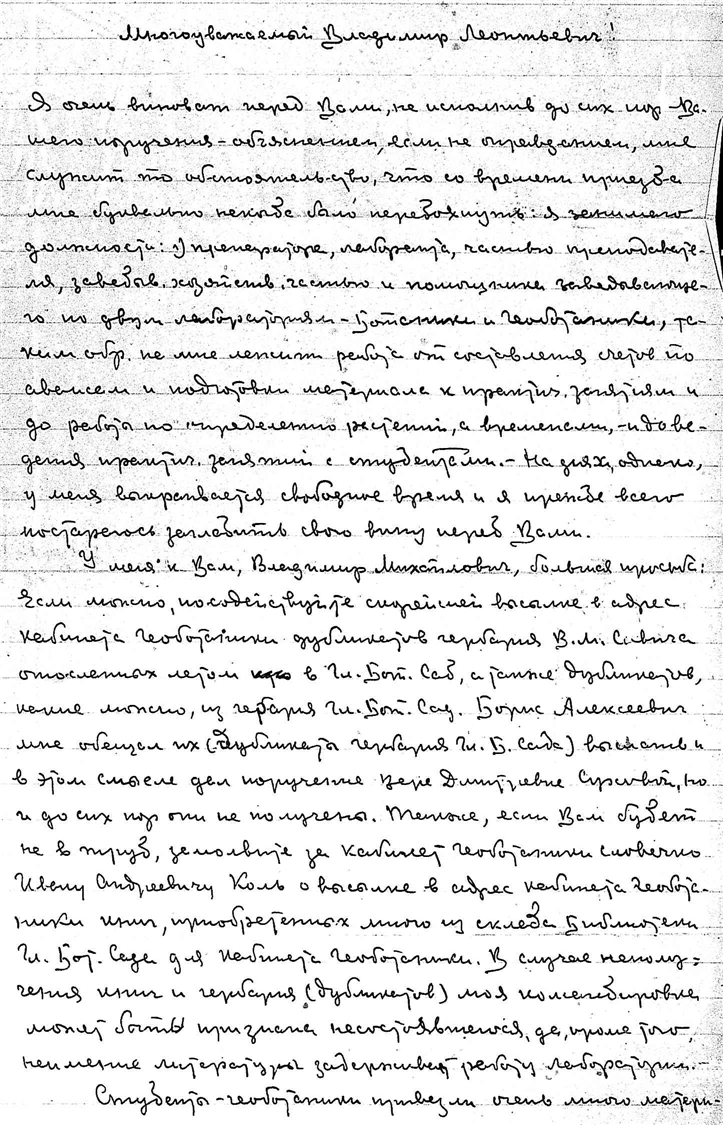 Многоуважаемый Владимир Леонтьевич!
Я очень виноват перед Вами, не исполнив до сих пор Ва-
шего поручения – объяснением, если не оправданием, мне
служит то обстоятельство, что со времени приезда
мне буквально некогда было передохнуть: я занимаю
должность: 1) препаратора, лаборанта, частью преподавате-
ля, заведыв. хозяйств. частью и помощника заведывающе-
го по двум лабораториям – Ботаники и Геоботаники, та-
ким обр. на мне лежит работа от составления счетов по
авансам и подготовки материала к практич. занятиям и
до работы по определению растений, а временами, – и до ве-
дения практич. занятий с студентами. – На днях, однако,
у меня выкраивается свободное время и я прежде всего
постараюсь загладить свою вину перед Вами.
У меня к Вам, Владимир Михайлович, большая просьба:
Если можно, посодействуйте скорейшей высылке в адрес
кабинета Геоботаники дубликатов гербария В.М. Савича
отосланных летом в Гл. Бот. Сад, а также дубликатов,
какие можно, из гербария Гл. Бот. Сад. Борис Алексеевич
мне обещал их (дубликаты гербария Гл. Б. Сада) выслать и
в этом смысле дал поручение Вере Дмитревне, но
и до сих пор они не получены. Также, если Вам будет
не в труд, замолвите за кабинет Геоботаники словечко
Ивану Андреевичу Коль о высылке в адрес кабинета Геобота-
ники книг, приобретенных мною из склада Библиотеки
Гл. Бот. Сада для кабинета Геоботаники. В случае неполу-
чения книг и гербария (дубликатов) моя командировка
может быть признана несостоявшеюся, да, кроме того,
неимение литературы задерживает работу лаборатории. –
Студенты – геоботаники привезли очень много матери-